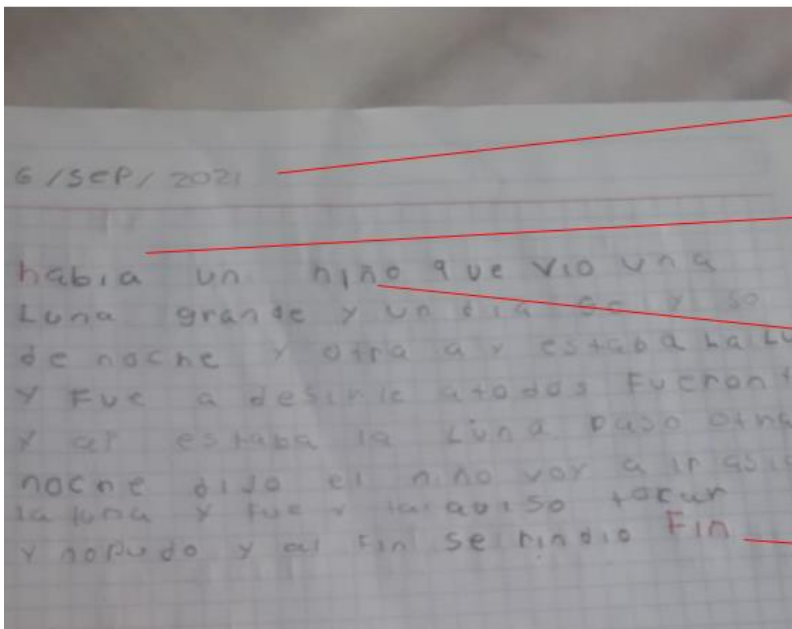 6/SEP/2021
había un niño que vio una
Luna grande y un día
de noche y otra a y estaba La Lu
y FUe a desirle atodos Fueron
y estaba la Luna paso otra
noche dijo el niño voy a ir
la luna y fue y tocar
y nopudo y al Fin se rindio Fin